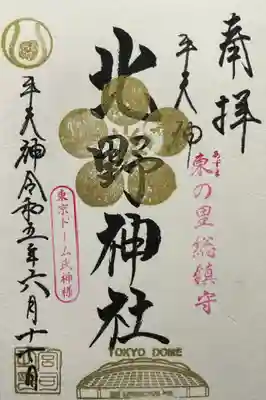 奉拝
牛天神
あずま
東の里総鎮守
北野神社
東京ドーム氏神様
TOKYO DOME
牛天神
令和五年六月十六日